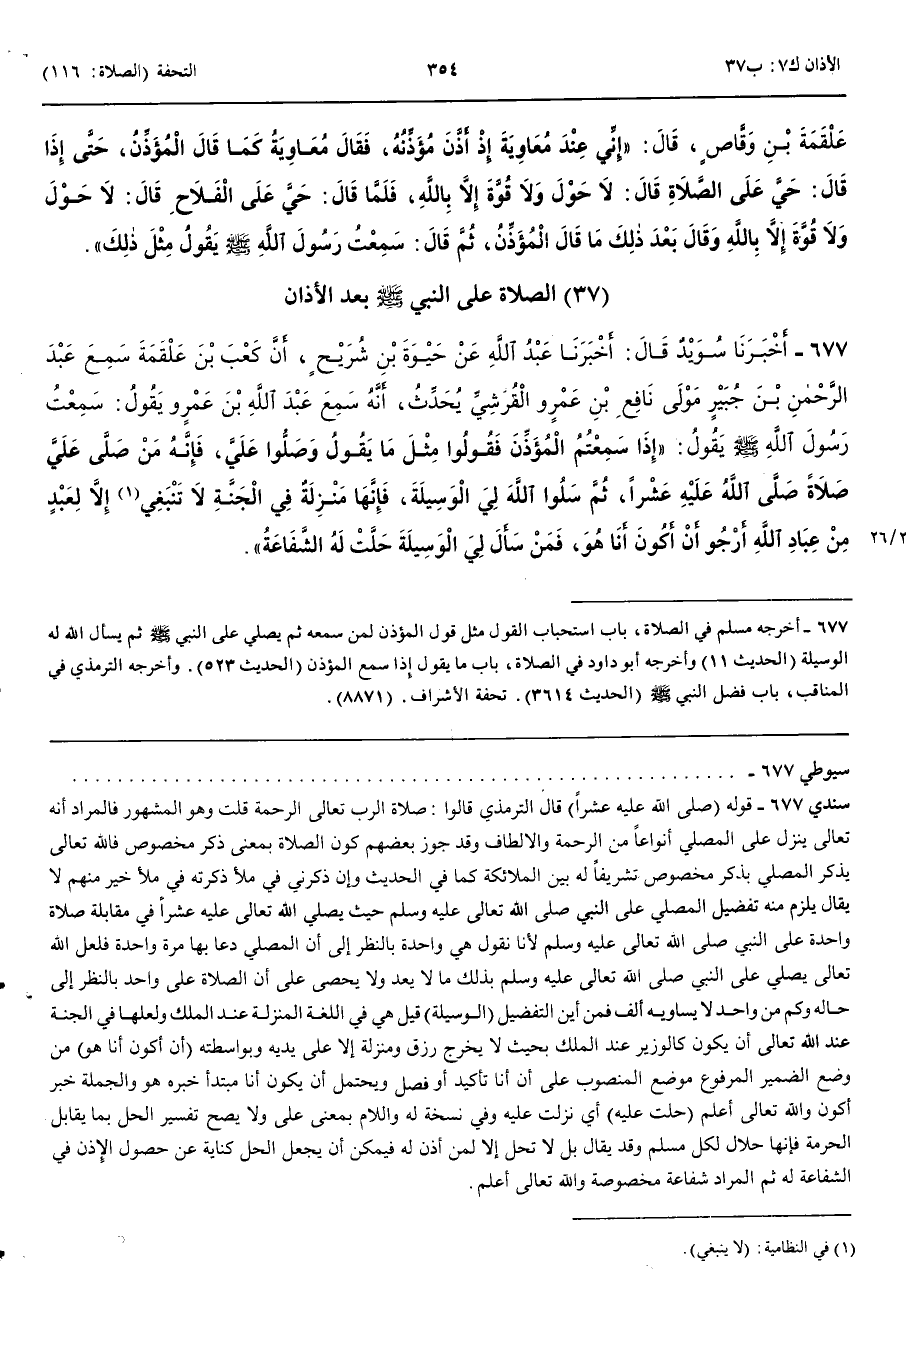 الأذان ك٧: ب٣٧ ٣٥٤ التحفة (الصلاة: ١١٦)
عَلْقَمَةَ بْنِ وَقَّاصٍ، قَالَ: «إِنِّي عِنْدَ مُعَاوِيَةَ إِذْ أَذَّنَ مُؤَذِّنُهُ، فَقَالَ مُعَاوِيَةُ كَمَا قَالَ الْمُؤَذِّنُ، حَتَّى إِذَا
قَالَ: حَيَّ عَلَى الصَّلَاةِ قَالَ: لَا حَوْلَ وَلَا قُوَّةَ إِلَّا بِاللَّهِ، فَلَمَّا قَالَ: حَيَّ عَلَى الْفَلَاحِ قَالَ: لَا حَوْلَ
وَلَا قُوَّةَ إِلَّا بِاللَّهِ وَقَالَ بَعْدَ ذٰلِكَ مَا قَالَ الْمُؤَذِّنُ، ثُمَّ قَالَ: سَمِعْتُ رَسُولَ اللَّهِ ﷺ يَقُولُ مِثْلَ ذٰلِكَ».
(٣٧) الصلاة على النبي ﷺ بعد الأذان
٦٧٧ - أَخْبَرَنَا سُوَيْدٌ قَالَ: أَخْبَرَنَا عَبْدُ اللَّهِ عَنْ حَيْوَةَ بْنِ شُرَيْحٍ، أَنَّ كَعْبَ بْنَ عَلْقَمَةَ سَمِعَ عَبْدَ
الرَّحْمٰنِ بْنَ جُبَيْرٍ مَوْلَى نَافِعِ بْنِ عَمْرٍو الْقُرَشِيِّ يُحَدِّثُ، أَنَّهُ سَمِعَ عَبْدَ اللَّهِ بْنَ عَمْرٍو يَقُولُ: سَمِعْتُ
رَسُولَ اللَّهِ ﷺ يَقُولُ: «إِذَا سَمِعْتُمُ الْمُؤَذِّنَ فَقُولُوا مِثْلَ مَا يَقُولُ وَصَلُّوا عَلَيَّ، فَإِنَّهُ مَنْ صَلَّى عَلَيَّ
صَلَاةً صَلَّى اللَّهُ عَلَيْهِ عَشْراً، ثُمَّ سَلُوا اللَّهَ لِيَ الْوَسِيلَةَ، فَإِنَّهَا مَنْزِلَةٌ فِي الْجَنَّةِ لَا تَنْبَغِي(١) إِلَّا لِعَبْدٍ
مِنْ عِبَادِ اللَّهِ أَرْجُو أَنْ أَكُونَ أَنَا هُوَ، فَمَنْ سَأَلَ لِيَ الْوَسِيلَةَ حَلَّتْ لَهُ الشَّفَاعَةُ». ٢٦/٢
٦٧٧ - أخرجه مسلم في الصلاة، باب استحباب القول مثل قول المؤذن لمن سمعه ثم يصلي على النبي ﷺ ثم يسأل الله له
الوسيلة (الحديث ١١) وأخرجه أبو داود في الصلاة، باب ما يقول إذا سمع المؤذن (الحديث ٥٢٣). وأخرجه الترمذي في
المناقب، باب فضل النبي ﷺ (الحديث ٣٦١٤). تحفة الأشراف. (٨٨٧١).
سيوطي ٦٧٧ - ........................................................
سندي ٦٧٧ - قوله (صلى الله عليه عشراً) قال الترمذي قالوا: صلاة الرب تعالى الرحمة قلت وهو المشهور فالمراد أنه
تعالى ينزل على المصلي أنواعاً من الرحمة والالطاف وقد جوز بعضهم كون الصلاة بمعنى ذكر مخصوص فالله تعالى
يذكر المصلي بذكر مخصوص تشريفاً له بين الملائكة كما في الحديث وإن ذكرني في ملأ ذكرته في ملأ خير منهم لا
يقال يلزم منه تفضيل المصلي على النبي صلى الله تعالى عليه وسلم حيث يصلي الله تعالى عليه عشراً في مقابلة صلاة
واحدة على النبي صلى الله تعالى عليه وسلم لأنا نقول هي واحدة بالنظر إلى أن المصلي دعا بها مرة واحدة فلعل الله
تعالى يصلي على النبي صلى الله تعالى عليه وسلم بذلك ما لا يعد ولا يحصى على أن الصلاة على واحد بالنظر إلى
حاله وكم من واحد لا يساويه ألف فمن أين التفضيل (الوسيلة) قيل هي في اللغة المنزلة عند الملك ولعلها في الجنة
عند الله تعالى أن يكون كالوزير عند الملك بحيث لا يخرج رزق ومنزلة إلا على يديه وبواسطته (أن أكون أنا هو) من
وضع الضمير المرفوع موضع المنصوب على أن أنا تأكيد أو فصل ويحتمل أن يكون أنا مبتدأ خبره هو والجملة خبر
أكون والله تعالى أعلم (حلت عليه) أي نزلت عليه وفي نسخة له واللام بمعنى على ولا يصح تفسير الحل بما يقابل
الحرمة فإنها حلال لكل مسلم وقد يقال بل لا تحل إلا لمن أذن له فيمكن أن يجعل الحل كناية عن حصول الإذن في
الشفاعة له ثم المراد شفاعة مخصوصة والله تعالى أعلم.
(١) في النظامية: (لا ينبغي).